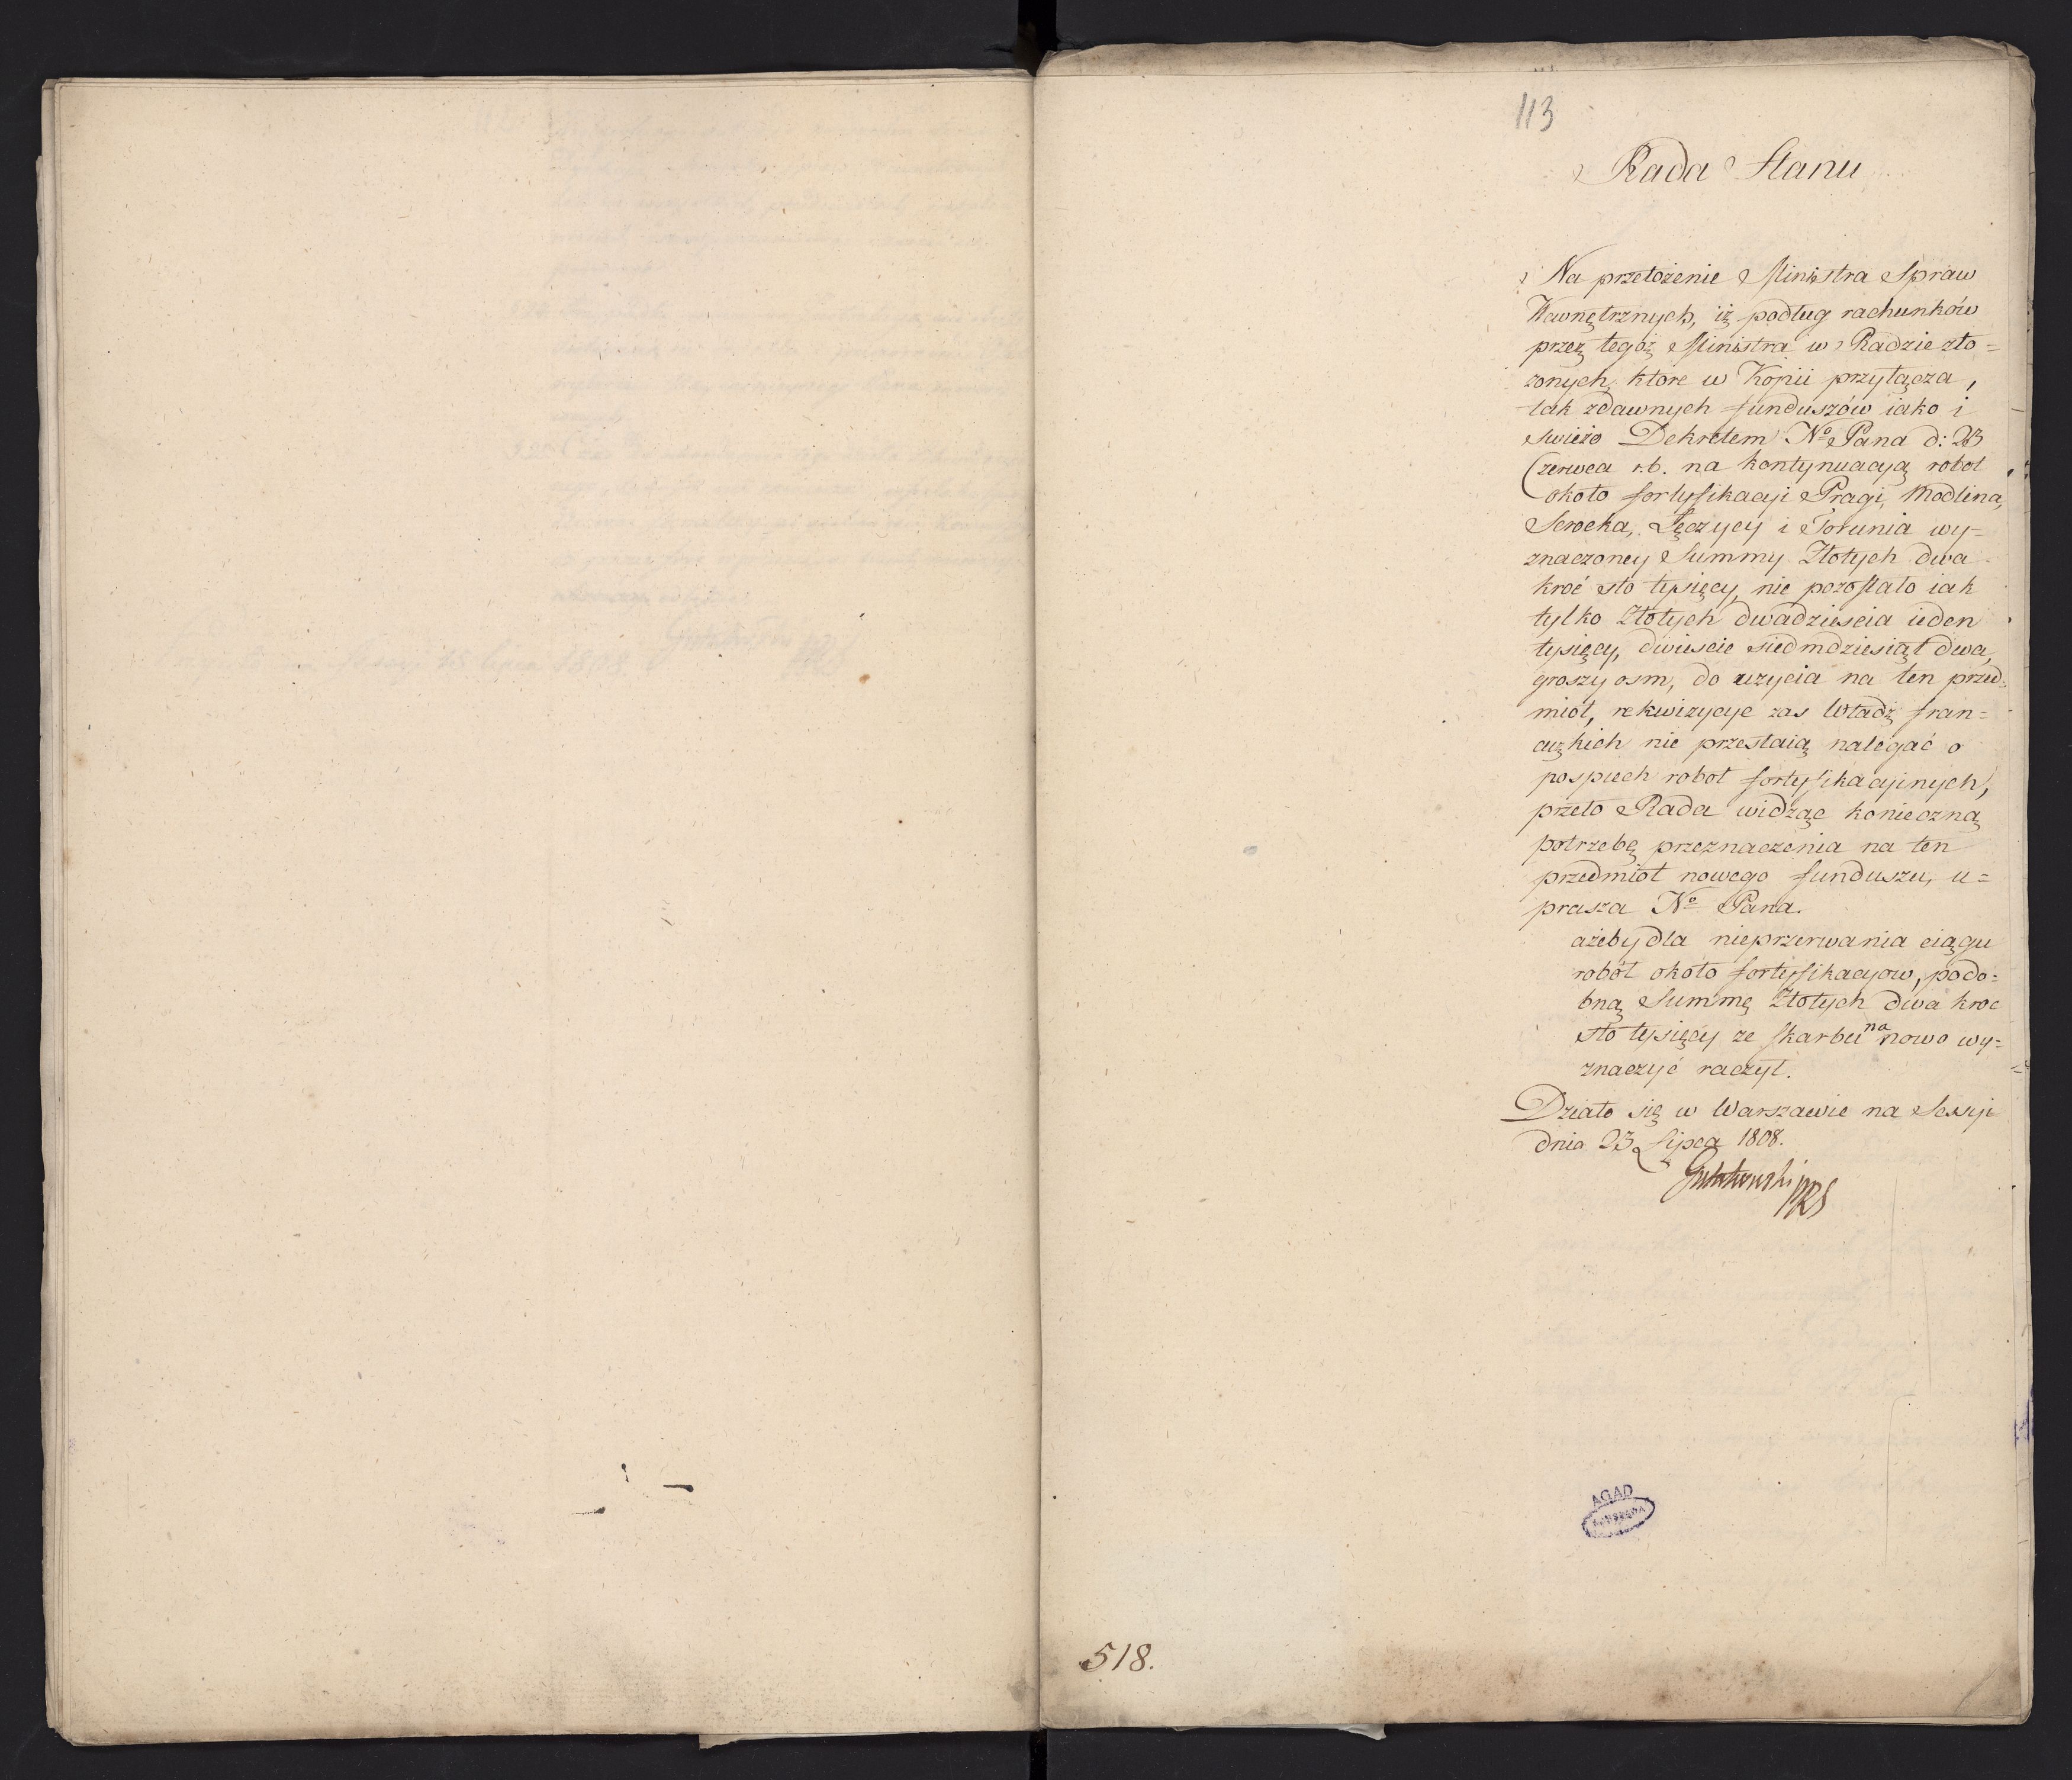 113
Rada Stanu
Na przełożenie Ministra Spraw
Wewnętrznych, iż podług rachunków
przez tegoż Ministra w Radzie zło=
zonych, ktore w Kopii przyłącza,
tak zdawnych funduszów iako i
swieżo Dekretem No Pana d: 23
Czerwca r.b. na kontynuacyą robot
około fortyfikacyi Pragi, Modlina,
Serocka, Łęczycy i Torunia wy=
znaczoney Summy Złotych dwa
kroć sto tysięcy, nie pozostało iak
tylko Złotych dwadziescia ieden
tysięcy, dwiescie siedmdziesiąt dwa,
groszy osm, do użycia na ten przed=
miot, rekwizycye zas Władz fran=
cuzkich nie przestaią nalegać o
pospiech robot fortyfikacyinych,
przeto Rada widząc konieczną
potrzebę przeznaczenia na ten
przedmiot nowego funduszu, u=
prasza No Pana.
ażeby dla nieprzerwania ciągu
robót około fortyfikacyow, podo=
bną Summę Złotych dwa kroc
sto tysięcy ze skarbu na nowo wy=
znaczyć raczył.
Działo się w Warszawie na Sessyi
dnia 23 Lipca 1808.
Gutakowski PRS
AGAD
WARSZAWA
518.